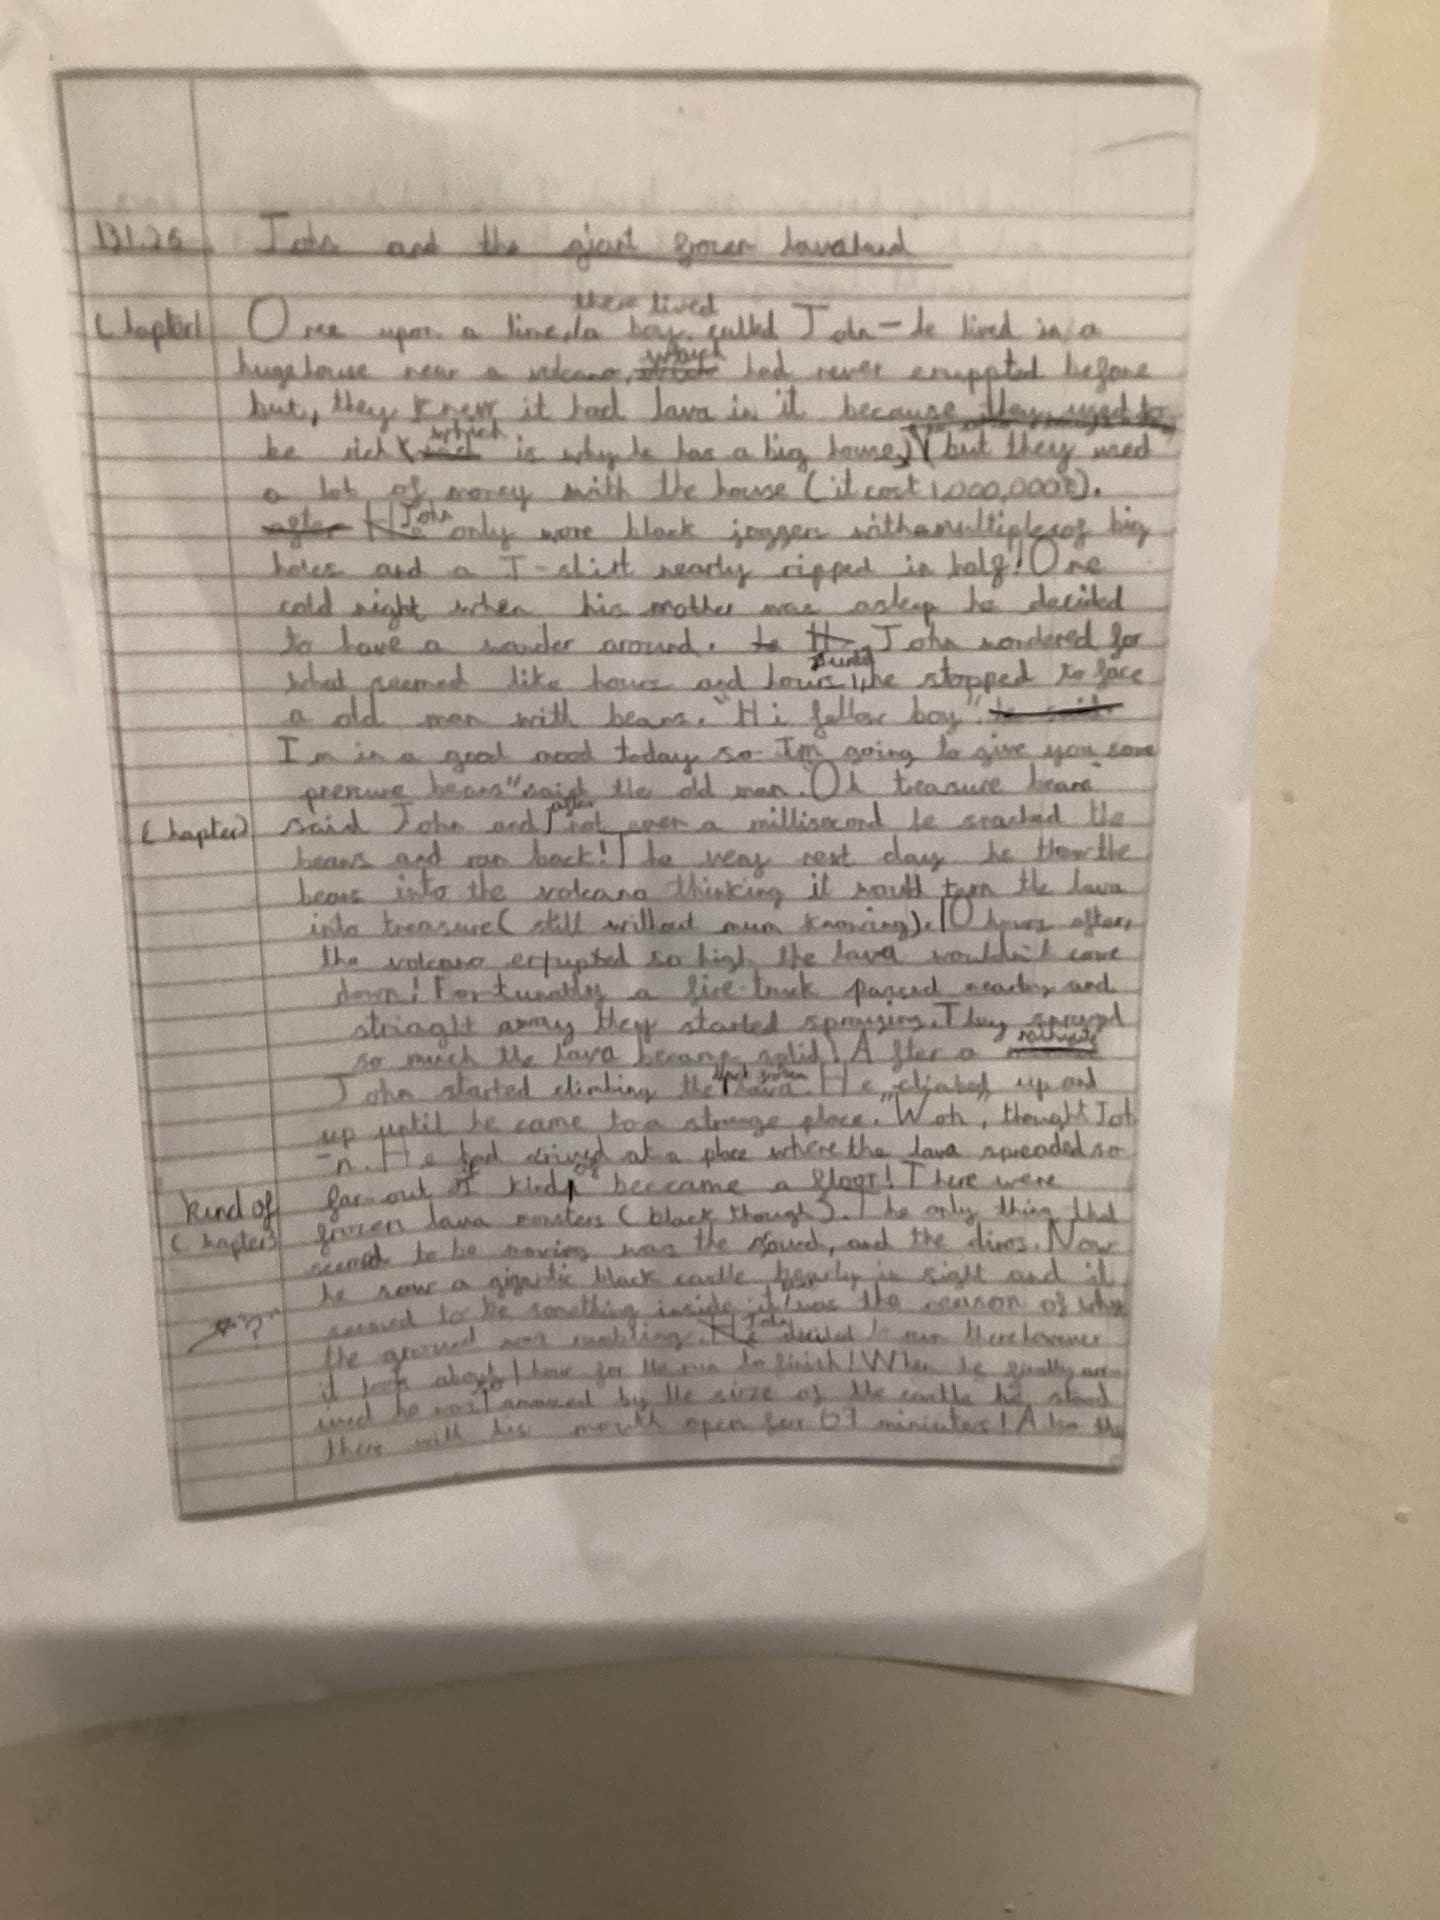 13.1.26 John and the giant frozen lavaland
there lived
Chapter1 Once upon a time, a boy called John - he lived in a
huge house near a volcano, which had never eruppted before
but, they knew it had lava in it because they used to
be rich (which is why he has a big house) but they used
a lot of money with the house (it cost 1,000,000£).
after He John only wore black joggers with a multiples of big
holes and a T-shirt nearly ripped in half! One
cold night when his mother was asleep he decided
to have a wander around. to H John wondered for
what seemed like hours and hours until he stopped to face
a old man with beans. "Hi fellow boy" he said
I'm in a good mood today so I'm going to give you some
beans" said the old man. "Oh treasure beans"
Chapter2 said John and after not even a millisecond he snached the
beans and ran back! The very next day he threw the
beans into the volcano thinking it would turn the lava
into treasure (still without mum knowing). 10 hours after,
the volcano errupted so high the lava wouldn't come
down! Fortunatly a fire-truck passed nearby and
striaght away they started spraying. They sprayed
so much the lava became solid! After a
John started climbing the lava. He climbed up and
up until he came to a strange place. Woh, thought Joh
-n. He had arived at a place where the lava spreaded so
far out it kind of beccame a floor! There were
kind of frozen lava monsters (black though). The only thing that
Chapter3 seemed to be moving was the sound, and the dinos. Now
he saw a gigantic black castle in sight and it
seemed to be something inside it was the reason of why
"?" the ground was rumbling. He John decided to run there however
it took about 1 hour for the run to finish! When he finally arr-
ived he was so amazed by the size of the castle he stood
there with his mouth open for 67 miniutes! Also the